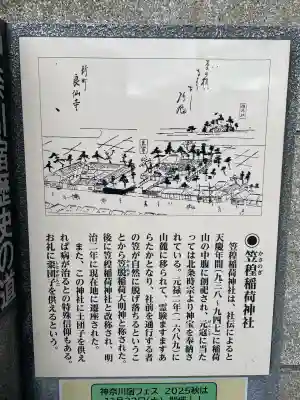 新町
良仙寺
●笠䅣稲荷神社
かさのぎ
笠䅣稲荷神社は、社伝によると
天慶年間(九三八〜九四七)に稲荷
山の中腹に創祀され、元寇に当た
っては北条時宗より神宝を奉納さ
れている。元禄二年(一六八九)に
山麓に移られて、霊験ますますあ
らたかとなり、社前を通行する者
の笠が自然に脱げ落ちるというこ
とから笠脱稲荷大明神と称された。
後に笠䅣稲荷神社と改称され、明
治二年に現在地に遷座された。
また、この神社に土団子を供え
れば病が治るとの特殊信仰もある。
お礼に粢団子を供えるという。
神奈川宿歴史の
神奈川宿フェス 2025秋は